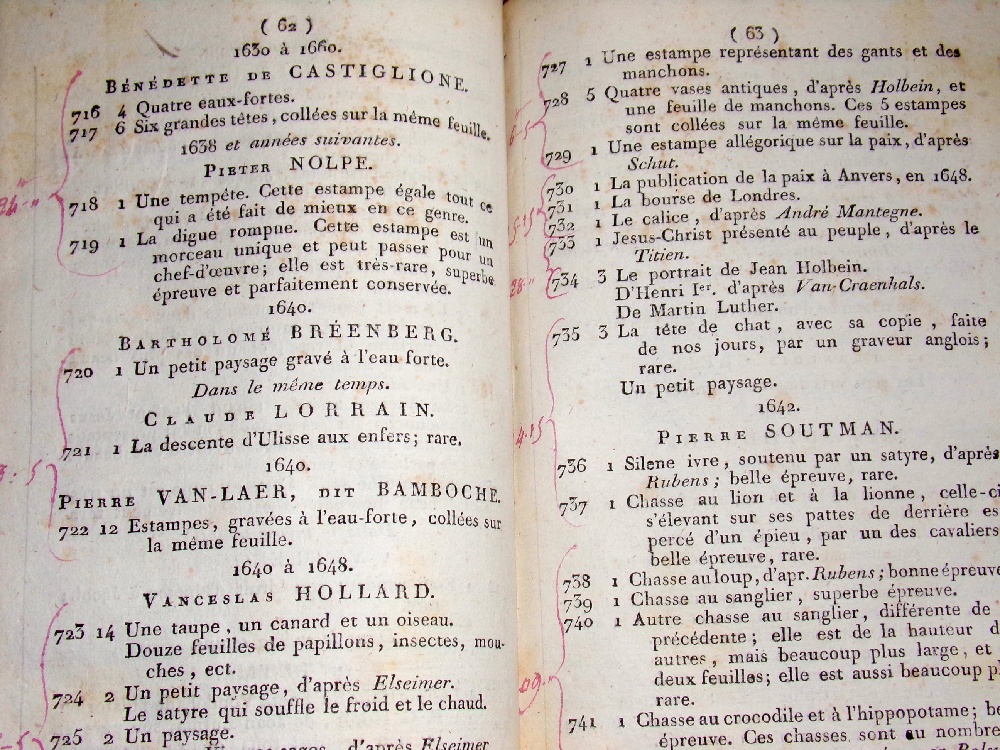 ( 62 )
1630 à 1660.
BÉNÉDETTE DE CASTIGLIONE.
716 4 Quatre eaux-fortes.
717 6 Six grandes têtes, collées sur la même feuille.
1638 et années suivantes.
PIETER NOLPE.
718 1 Une tempête. Cette estampe égale tout ce
qui a été fait de mieux en ce genre.
719 1 La digue rompue. Cette estampe est un
morceau unique et peut passer pour un
chef-d'œuvre; elle est très-rare, superbe
épreuve et parfaitement conservée.
1640.
BARTHOLOMÉ BRÉENBERG.
720 1 Un petit paysage gravé à l'eau forte.
Dans le même temps.
CLAUDE LORRAIN.
721 1 La descente d'Ulisse aux enfers; rare.
1640.
PIERRE VAN-LAER, DIT BAMBOCHE.
722 12 Estampes, gravées à l'eau-forte, collées sur
la même feuille.
1640 à 1648.
VANCESLAS HOLLARD.
723 14 Une taupe, un canard et un oiseau.
Douze feuilles de papillons, insectes, mou-
ches, ect.
724 2 Un petit paysage, d'après Elseimer.
Le satyre qui souffle le froid et le chaud.
725 2 Un paysage.
d'après Elseimer
( 63 )
727 1 Une estampe représentant des gants et des
manchons.
728 5 Quatre vases antiques, d'après Holbein, et
une feuille de manchons. Ces 5 estampes
sont collées sur la même feuille.
729 1 Une estampe allégorique sur la paix, d'après
Schut.
730 1 La publication de la paix à Anvers, en 1648.
731 1 La bourse de Londres.
732 1 Le calice, d'après André Mantegne.
733 1 Jesus-Christ présenté au peuple, d'après le
Titien.
734 3 Le portrait de Jean Holbein.
D'Henri Ier. d'après Van-Craenhals.
De Martin Luther.
735 3 La tête de chat, avec sa copie, faite
de nos jours, par un graveur anglois;
rare.
Un petit paysage.
1642.
PIERRE SOUTMAN.
736 1 Silene ivre, soutenu par un satyre, d'après
Rubens; belle épreuve, rare.
737 1 Chasse au lion et à la lionne, celle-ci
s'élevant sur ses pattes de derrière es
percé d'un épieu, par un des cavaliers
belle épreuve, rare.
738 1 Chasse au loup, d'apr. Rubens; bonne épreuve
739 1 Chasse au sanglier, superbe épreuve.
740 1 Autre chasse au sanglier, différente de
précédente; elle est de la hauteur d
autres, mais beaucoup plus large, et
deux feuilles; elle est aussi beaucoup p
rare.
741 1 Chasse au crocodile et à l'hippopotame; be
épreuve. Ces chasses sont au nombre